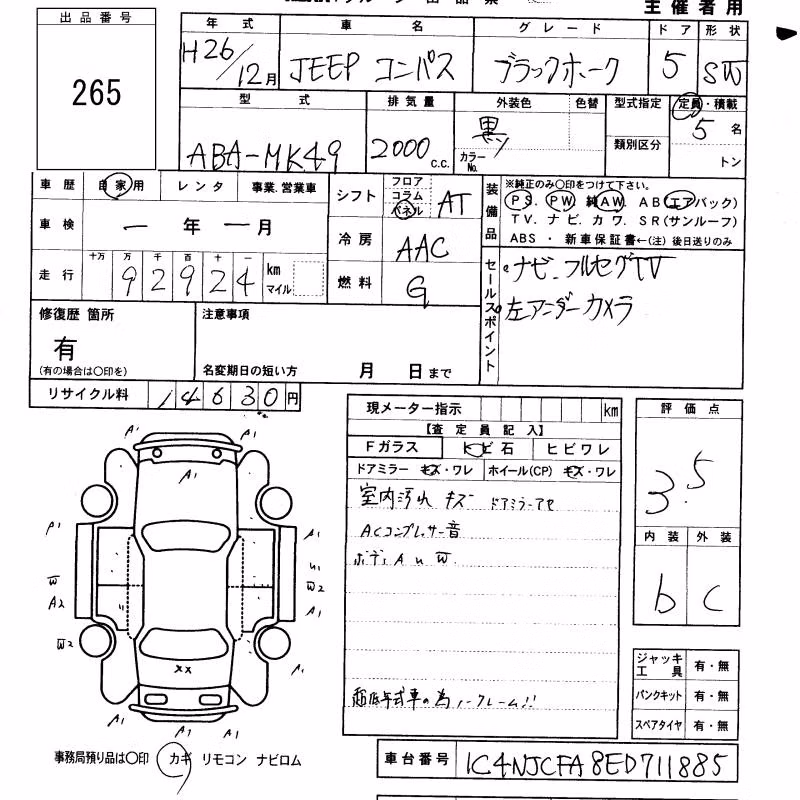 主催者用
出品番号
265
年式 車名 グレード ドア 形状
H26/12月 JEEP コンパス ブラックホーク 5 SW
型式 排気量 外装色 色替 型式指定 定員・積載
ABA-MK49 2000 c.c. 黒 カラーNo. 類別区分 5名
トン
車歴 自家用 レンタ 事業.営業車
車検 ー年ー月
走行 十万 万 千 百 十 一
92924 km マイル
シフト フロア コラム パネル AT
冷房 AAC
燃料 G
装備品
※純正のみ〇印をつけて下さい。
PS. PW 純AW. AB(エアバック)
TV. ナビ. カワ. SR(サンルーフ)
ABS ・ 新車保証書←(注) 後日送りのみ
セールスポイント
ナビ.フルセグTV
左アンダーカメラ
修復歴 箇所
有
(有の場合は〇印を)
注意事項
名変期日の短い方 月 日まで
リサイクル料 14630円
現メーター指示 km
【査定員記入】
Fガラス トビ石 ヒビワレ
ドアミラー キズ・ワレ ホイール(CP) キズ・ワレ
室内汚れ キズ ドアミラーアセ
ACコンプレッサー音
ボディ A U W
超低年式車の為ノークレーム!!
評価点
3.5
内装 外装
b C
ジャッキ工具 有・無
パンクキット 有・無
スペアタイヤ 有・無
A1 A1
A1
P1 A1
W U1
A2 W2
A1
W2
XX
A1
A1 A1
A1
事務局預り品は〇印 カギ リモコン ナビロム
車台番号 1C4NJCFA8ED711885